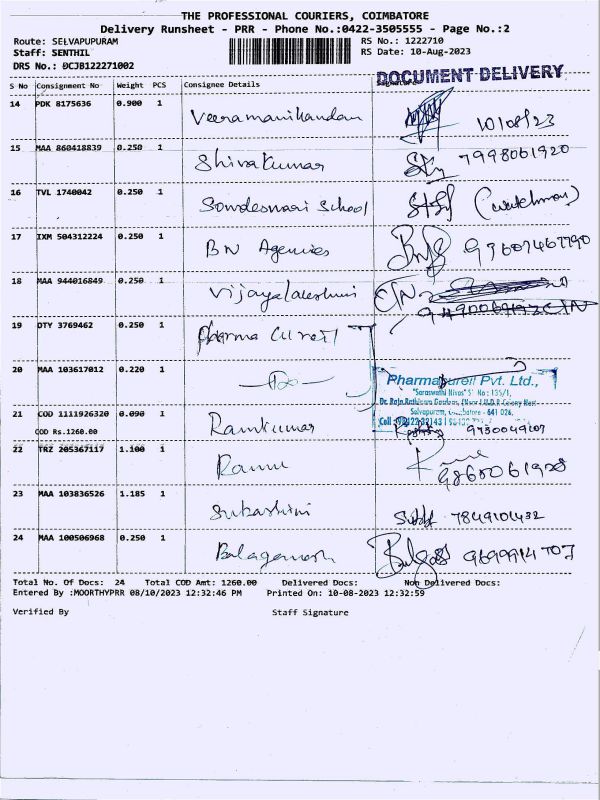 THE PROFESSIONAL COURIERS, COIMBATORE
Delivery Runsheet - PRR - Phone No.:0422-3505555 - Page No.:2
Route: SELVAPUPURAM RS No.: 1222710
Staff: SENTHIL RS Date: 10-Aug-2023
DRS No.: DCJB122271002
DOCUMENT DELIVERY
S No Consignment No Weight PCS Consignee Details Signature
14 PDK 8175636 0.900 1 Veeramanikandan 10/08/23
15 MAA 860418839 0.250 1 Shivakumar 7998061920
16 TVL 1740042 0.250 1 Sowdeswari School (watchman)
17 IXM 504312224 0.250 1 BN Agencies
18 MAA 944016849 0.250 1 Vijayalakshmi
19 DTY 3769462 0.250 1 Pharma
20 MAA 103617012 0.220 1 - Do -
Pharmacureil Pvt. Ltd.,
"Saraswathi Nivas" S' No : 135/1,
Selvapuram, Coimbatore - 641 026.
21 COD 1111926320 0.090 1 Ramkumar
COD Rs.1260.00
22 TRZ 205367117 1.100 1 Ramu 9865061928
23 MAA 103836526 1.185 1 Subashini 7849101432
24 MAA 100506968 0.250 1 Balaganesh 9699914707
Total No. Of Docs: 24 Total COD Amt: 1260.00 Delivered Docs: Non Delivered Docs:
Entered By :MOORTHYPRR 08/10/2023 12:32:46 PM Printed On: 10-08-2023 12:32:59
Verified By Staff Signature